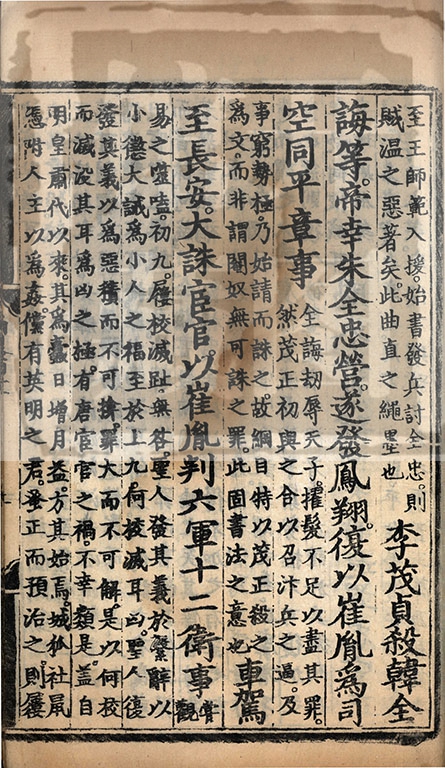 至王師範入援始書發兵討全忠。則
賊溫之惡著矣。此曲直之繩墨也
李茂貞殺韓全
誨等。帝幸朱全忠營。遂發鳳翔。復以崔胤為司
空同平章事
全誨劫辱天子。擢髮不足以盡其罪。
然茂正初與之合以召汴兵之逼。及
事窮勢極。乃始請而誅之。故綱目特以茂正殺之
為文。而非謂閹奴無可誅之罪。此固書法之意也
車駕
至長安。大誅宦官。以崔胤判六軍十二衛事
嘗
觀
易之噬嗑。初九。屨校滅趾。無咎。聖人發其義於繫辭以
小懲大誡為小人之福。至於上九。何校滅耳凶。聖人復
發其義以為惡積而不可掩。罪大而不可解。是以何校
而滅沒其耳為凶之極。有唐宦官之禍。不幸類是。蓋自
明皇肅代以來。其為蠹日增月益。方其始焉。城狐社鼠
憑附人主以為姦。儻有英明之君。蚤正而預治之。則屨